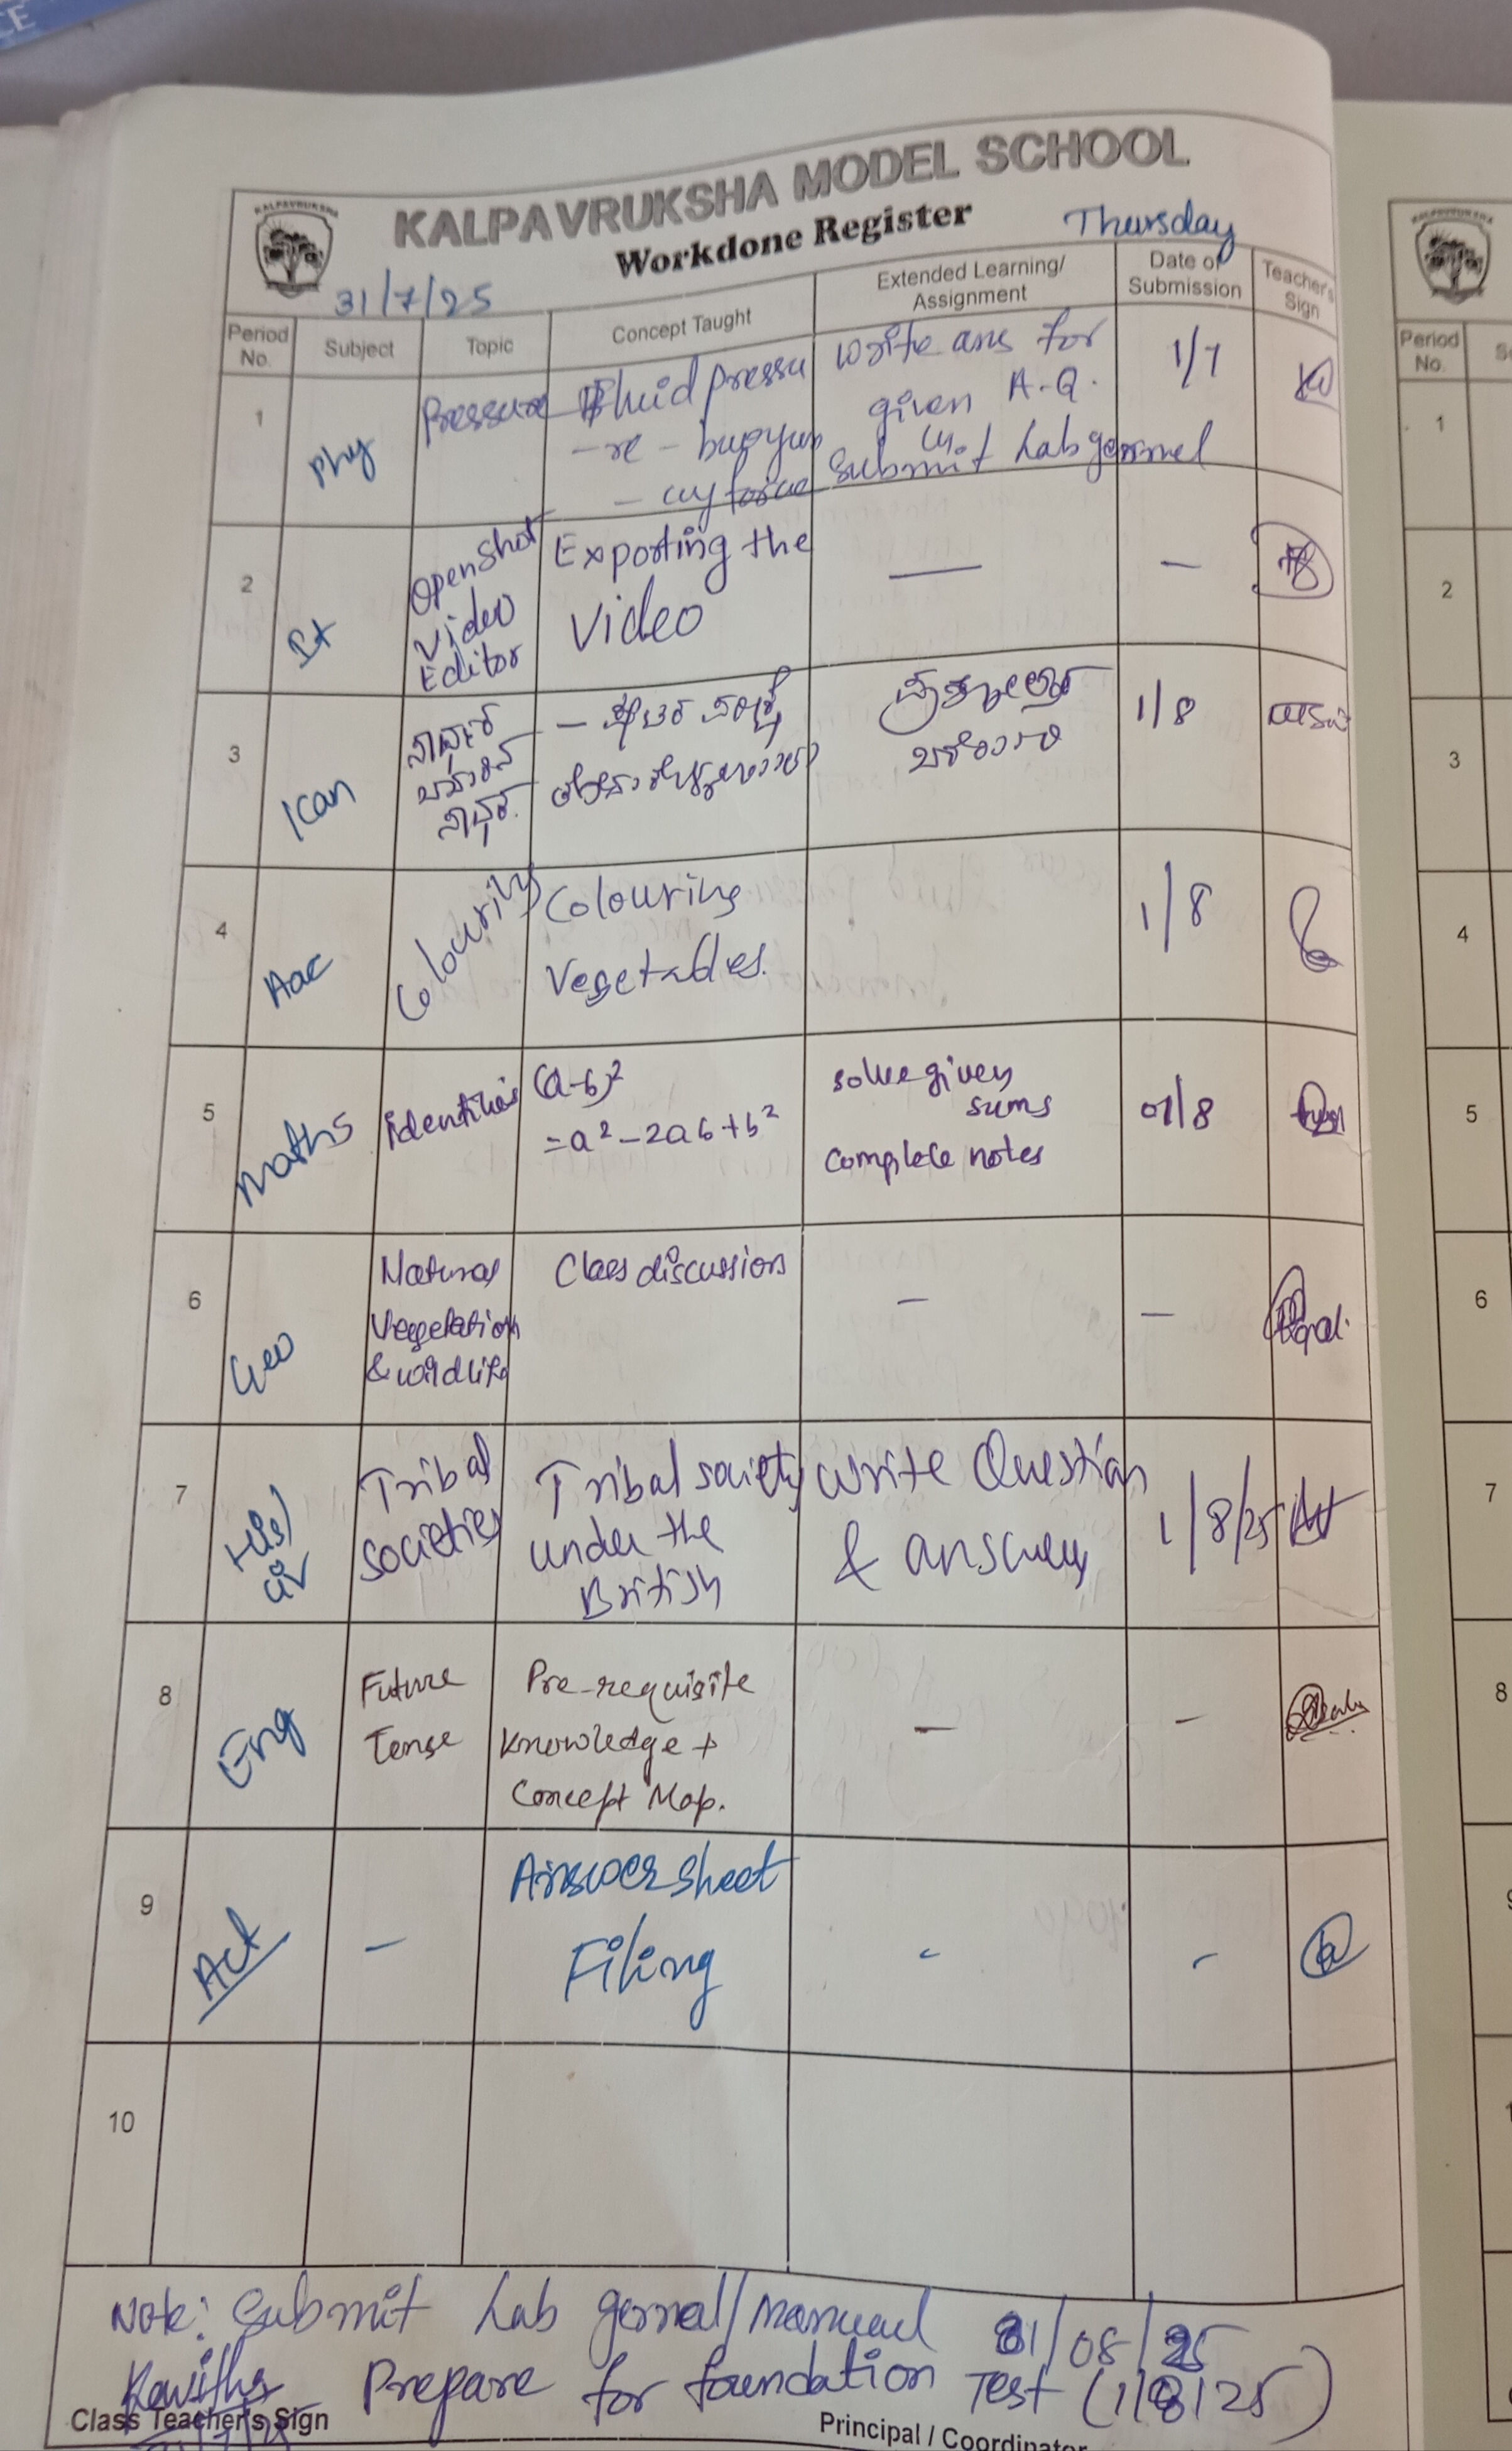 KALPAVRUKSHA
KALPAVRUKSHA MODEL SCHOOL
Workdone Register
Thursday
31/7/25
Period No.
Subject
Topic
Concept Taught
Extended Learning/ Assignment
Date of Submission
Teacher's Sign
1
Phy
Pressure
Fluid pressu
-re - buoyan
- cy force
Write ans for
given A.Q.
Submit Lab gornnel
1/7
2
Openshot
Video
Editor
Exporting the
Video
—
—
3
Kan
1/8
4
Aac
Colouring
Colouring
Vegetables.
1/8
5
Maths
identities
(a-b)²
=a²-2ab+b²
solve given
sums
complete notes
01/8
6
Geo
Natural
Vegetation
& wildlife
Class discussion
–
–
7
His/
civ
Tribal
societies
Tribal society
under the
British
Write Question
& answers
1/8/25
8
Eng
Future
Tense
Pre-requisite
Knowledge +
Concept Map.
–
–
9
Act
–
Answer sheet
Filing
-
-
10
Note: Submit Lab gornel/manual 01/08/25
Kavitha
Prepare for foundation Test (1/8/25)
Class Teacher's Sign
Principal / Coordinator
Period No.
1
2
3
4
5
6
7
8